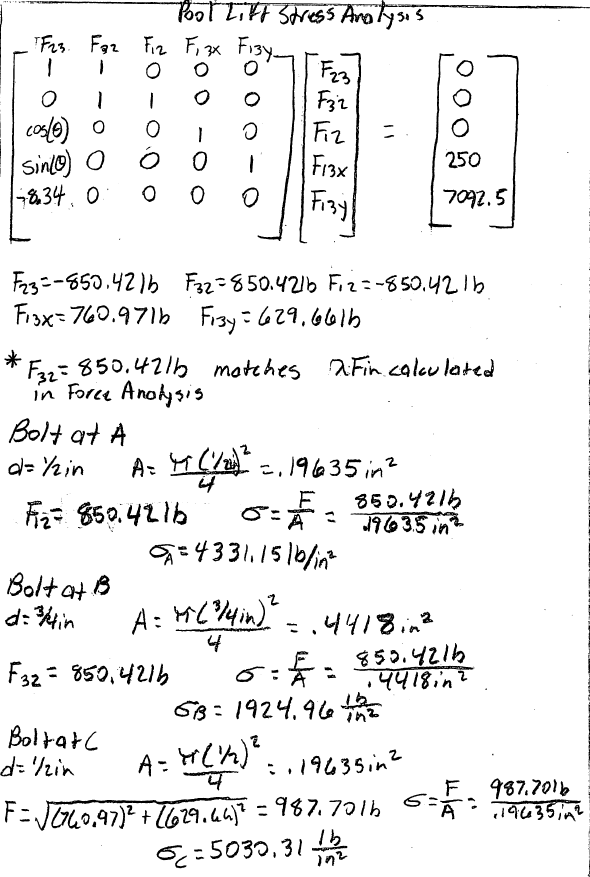 Pool Lift Stress Analysis
F23 F32 F12 F13x F13y
1 1 0 0 0 F23 0
0 1 1 0 0 F32 0
cos(θ) 0 0 1 0 F12 = 0
sin(θ) 0 0 0 1 F13x 250
-8.34 0 0 0 0 F13y 7092.5
F23=-850.42lb F32=850.42lb F12=-850.42lb
F13x=760.97lb F13y=629.66lb
* F32=850.42lb matches 2Fin calculated
in Force Analysis
Bolt at A
d=1/2in A= π(1/2in)²/4 =.19635in²
F12=850.42lb σ=F/A = 850.42lb/.19635in²
σA=4331.15lb/in²
Bolt at B
d=3/4in A= π(3/4in)²/4 = .4418in²
F32= 850.42lb σ=F/A = 850.42lb/.4418in²
σB= 1924.96 lb/in²
Bolt at C
d=1/2in A= π(1/2)²/4 = .19635in²
F=√(760.97)²+(629.66)² = 987.70lb σ=F/A = 987.70lb/.19635in²
σC=5030.31 lb/in²